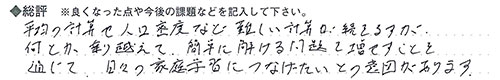 ◆総評 ※良くなった点や今後の課題などを記入して下さい。
平均の計算や人口密度など難しい計算が続きますが、
何とか乗り越えて、簡単に解ける問題を増やすことを
通じて、日々の家庭学習につなげたいとの意図があります